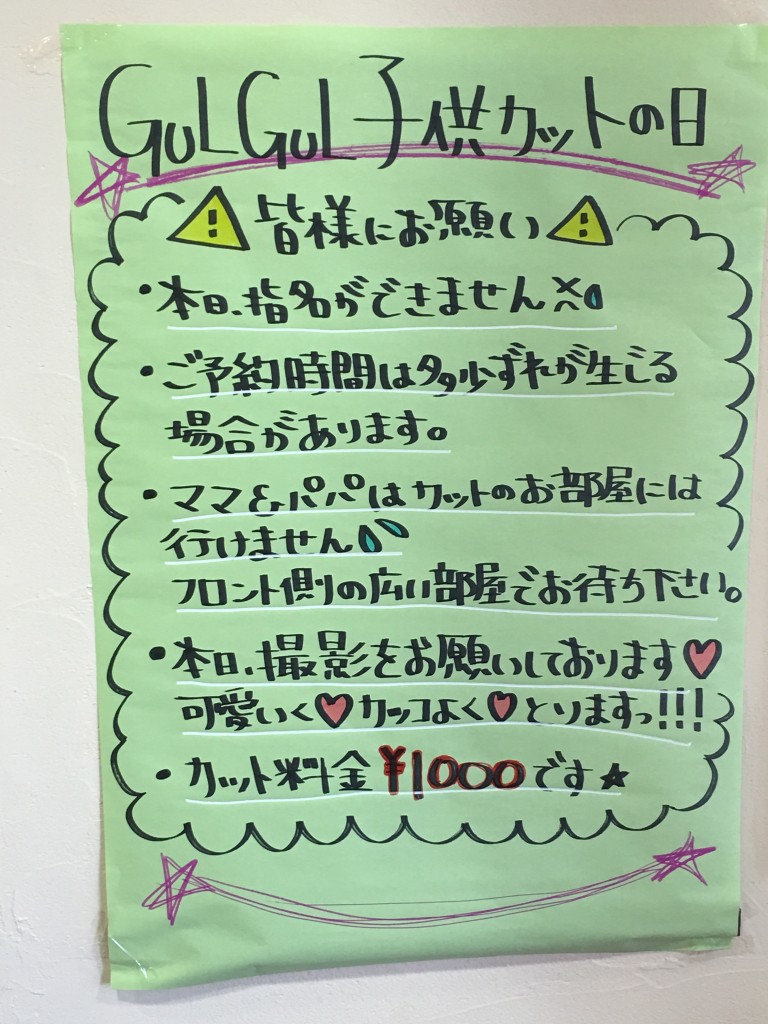 GULGUL子供カットの日
皆様にお願い
・本日、指名ができません
・ご予約時間は多少ずれが生じる
場合があります。
・ママ&パパはカットのお部屋には
行けません
フロント側の広い部屋でお待ち下さい。
・本日、撮影をお願いしております♥
可愛いく♥カッコよく♥とりますっ!!!
・カット料金¥1000です★